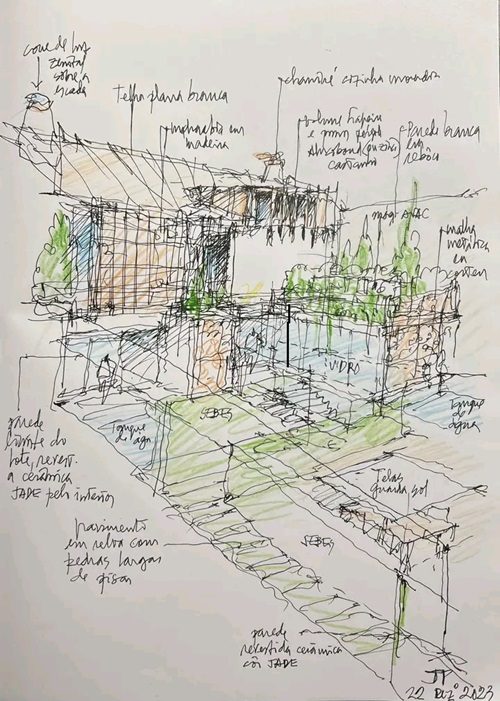 cone de luz
zenital
sobre a
escada
Telha plana branca
chaminé cozinha
em
madeira
volume
e
castanho
Parede branca
em
rebôco
malha
metálica
em
corten
VIDRO
SEBES
Tanque
de água
Tanque
de água
parede
limite do
lote, revest.
a cerâmica
JADE pelo interior
Telas
guarda sol
SEBES
pavimento
em relva com
pedras largas
de pisar
parede
revestida cerâmica
côr JADE
JP
22 DEZº 2023